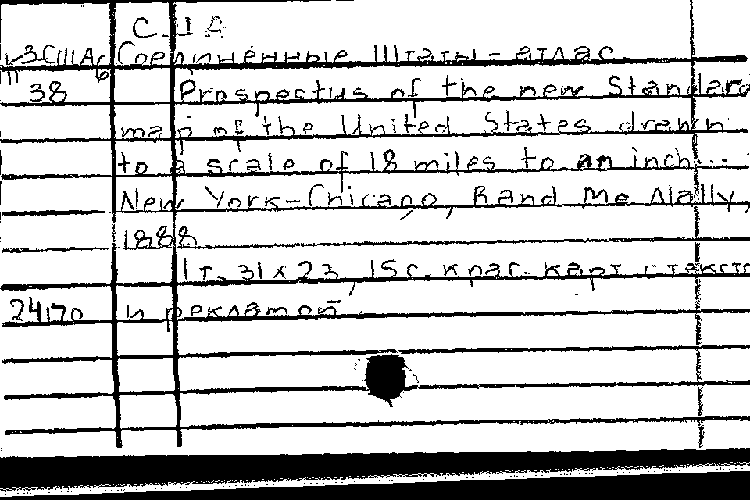 США
Соединённые Штаты - атлас
38 Prospectus of the new Standard
map of the United States drawn
to a scale of 18 miles to an inch...
New York-Chicago, Rand Mc Nally,
1888.
1 т. 31 x 23, 15 с. крас. карт с текст
24170 и рекламой.